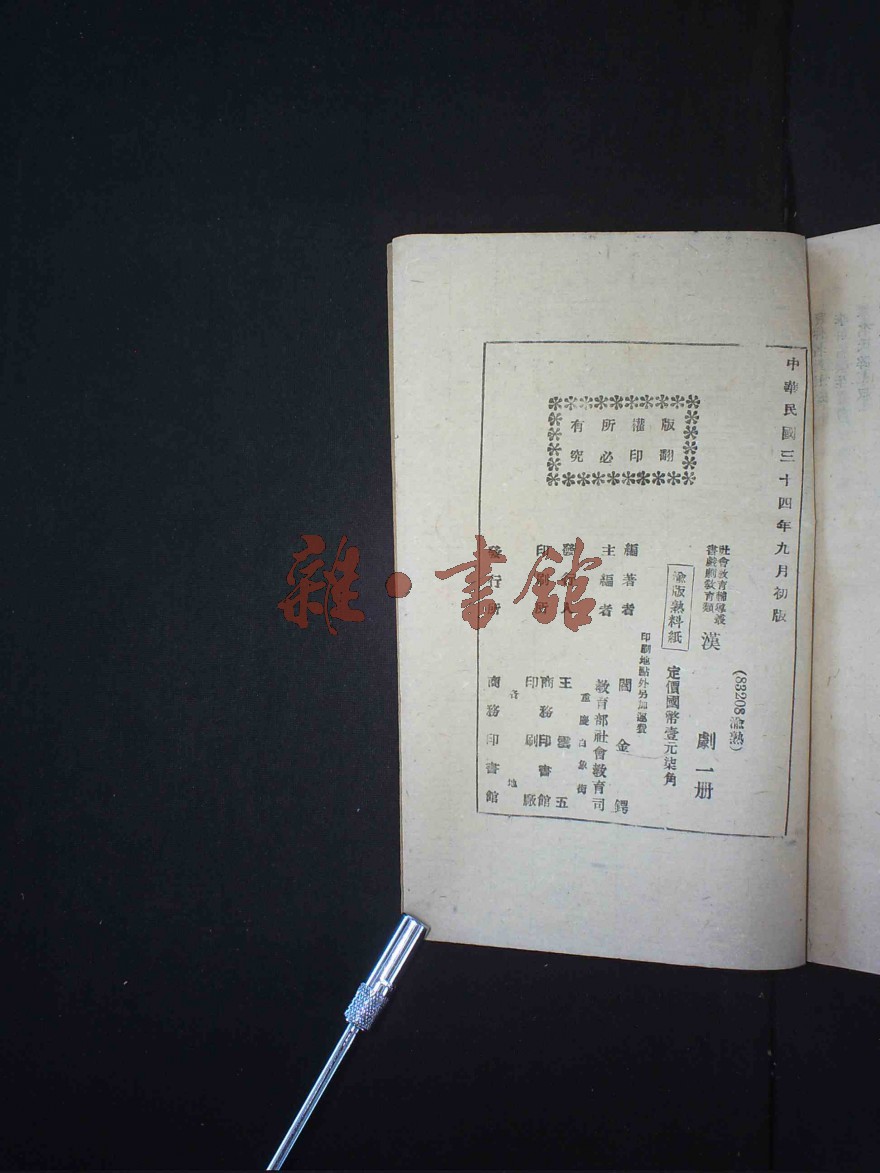 中華民國三十四年九月初版
版權所有
翻印必究
(83208渝熟)
社會教育輔導叢
書戲劇教育類
漢劇一册
渝版熟料紙
定價國幣壹元柒角
印刷地點外另加運費
編著者 閻金鍔
主編者 教育部社會教育司
重慶白象街
發行人 王雲五
印刷所 商務印書館
印刷廠
發行所 各地
商務印書館
雜·書館